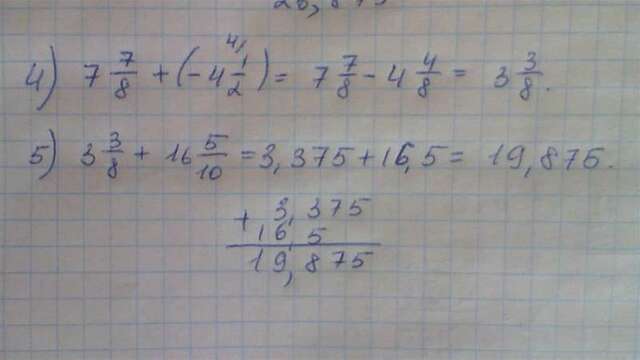 4) 7 7/8 + (-4 1/2) = 7 7/8 - 4 4/8 = 3 3/8.
5) 3 3/8 + 16 5/10 = 3,375 + 16,5 = 19,875.
+ 3,375
16,5
19,875